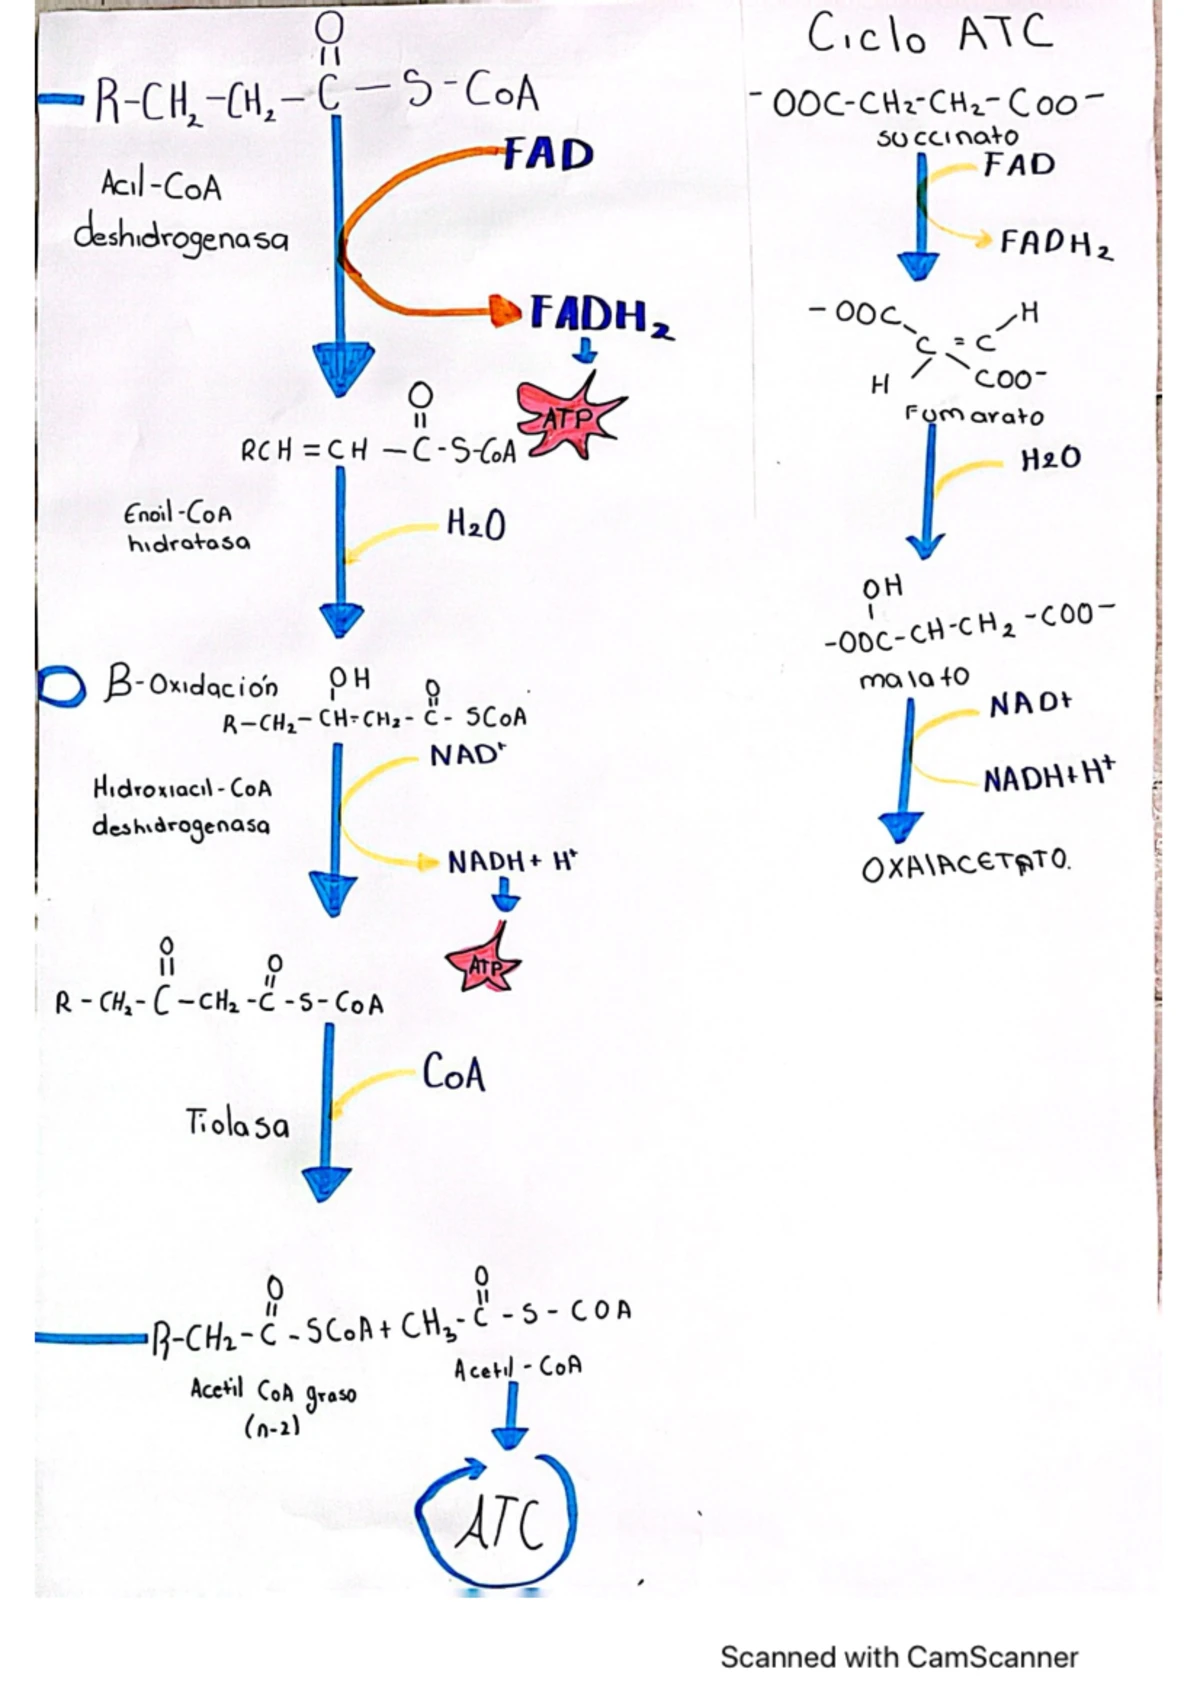 O
||
R-CH₂-CH₂-C-S-CoA
FAD
Acil-CoA
deshidrogenasa
FADH₂
ATP
O
||
RCH=CH-C-S-CoA
Enoil-CoA
hidratasa
H₂O
B-Oxidación
OH
O
||
R-CH₂-CH-CH₂-C-SCoA
NAD⁺
Hidroxiacil-CoA
deshidrogenasa
NADH + H⁺
ATP
O
||
O
||
R-CH₂-C-CH₂-C-S-CoA
CoA
Tiolasa
O
||
O
||
R-CH₂-C-SCoA+CH₃-C-S-COA
Acetil CoA graso
(n-2)
Acetil-CoA
ATC
Ciclo ATC
⁻OOC-CH₂-CH₂-COO⁻
succinato
FAD
FADH₂
-OOC H
C=C
H COO⁻
Fumarato
H2O
OH
-OOC-CH-CH₂-COO⁻
malato
NAD+
NADH+H⁺
OXAlACETATO.
Scanned with CamScanner